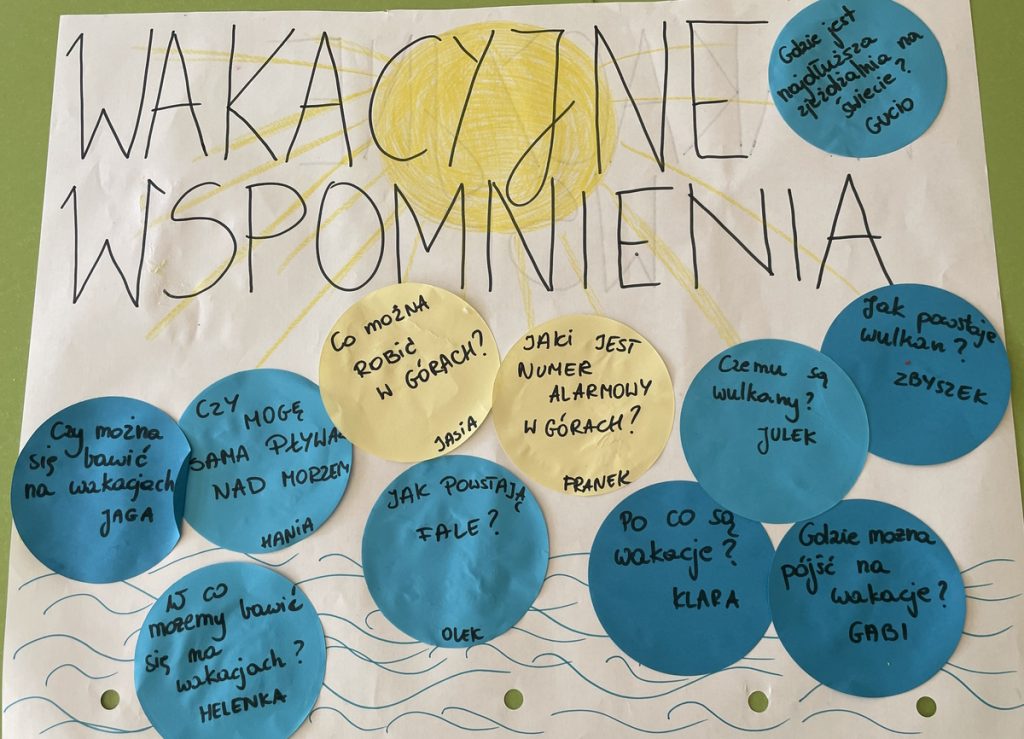 WAKACYJNE
WSPOMNIENIA
Gdzie jest
najdłuższa
zjeżdżalnia na
świecie?
GUCIO
Co można
ROBIĆ
W GÓRACH?
JASIA
JAKI JEST
NUMER
ALARMOWY
W GÓRACH?
FRANEK
Czemu są
wulkany?
JULEK
Jak powstaje
wulkan?
ZBYSZEK
Czy można
się bawić
na wakacjach
JAGA
CZY
MOGĘ
SAMA PŁYWA
NAD MORZEM
HANIA
JAK POWSTAJĄ
FALE?
OLEK
Po co są
wakacje?
KLARA
Gdzie można
pójść na
wakacje?
GABI
W co
możemy bawić
się na
wakacjach?
HELENKA